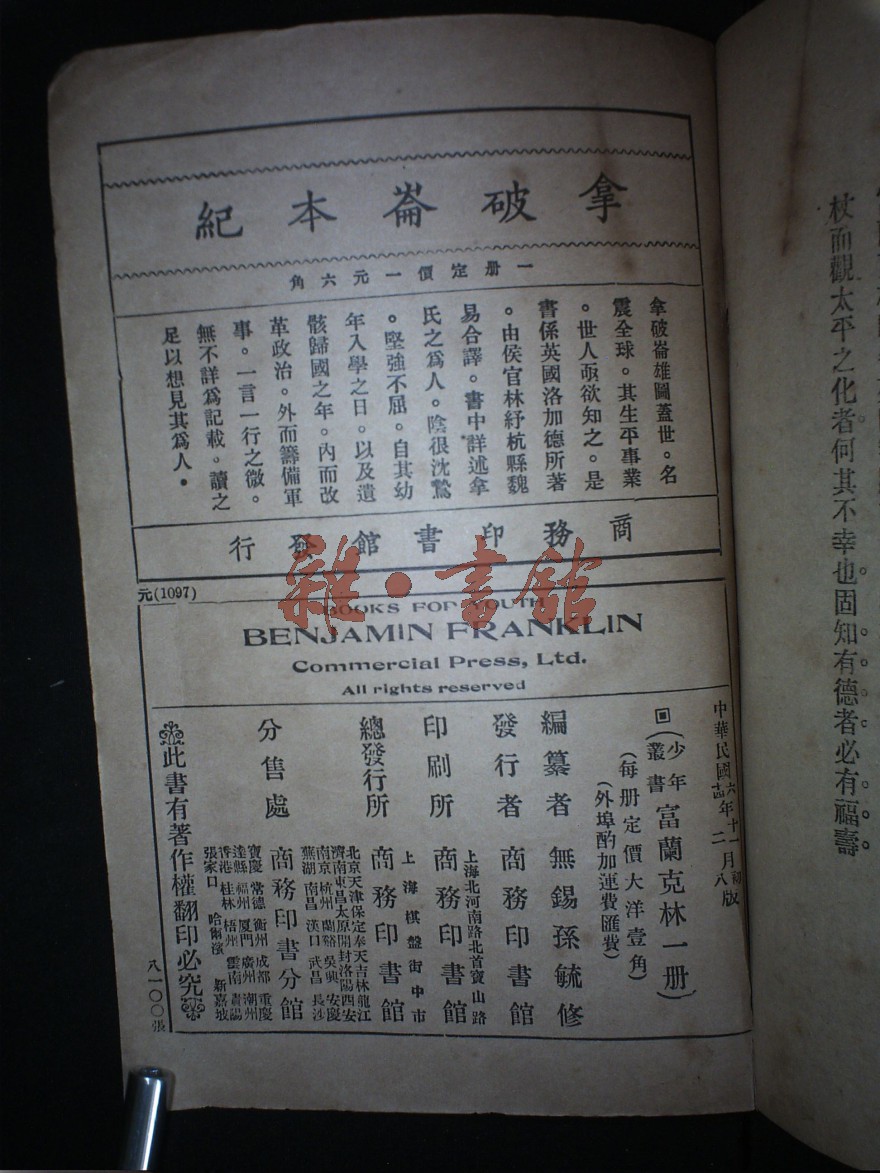 拿破崙本紀
一册定價一元六角
拿破崙雄圖蓋世。名
震全球。其生平事業
。世人亟欲知之。是
書係英國洛加德所著
。由侯官林紓杭縣魏
易合譯。書中詳述拿
氏之爲人。陰很沈鷙
。堅強不屈。自其幼
年入學之日。以及遺
骸歸國之年。內而改
革政治。外而籌備軍
事。一言一行之微。
無不詳爲記載。讀之
足以想見其爲人。
商務印書館發行
雜·書館
元(1097)
BOOKS FOR YOUTH
BENJAMIN FRANKLIN
Commercial Press, Ltd.
All rights reserved
中華民國
年十一月初版
二八版
回(少年叢書富蘭克林一册)
(每册定價大洋壹角)
(外埠酌加運費匯費)
編纂者 無錫孫毓修
發行者 商務印書館
上海北河南路北首寶山路
印刷所 商務印書館
上海棋盤街中市
總發行所 商務印書館
北京天津保定奉天吉林龍江
濟南東昌太原開封洛陽西安
南京杭州蘭谿吳興安慶
蕪湖南昌漢口武昌長沙
分售處 商務印書分館
寶慶常德衡州成都重慶
達縣福州廈門廣州潮州
香港桂林梧州雲南貴陽
張家口 哈爾濱 新嘉坡
此書有著作權翻印必究
八一〇〇張
杖而觀太平之化者何其不幸也固知有德者必有福壽